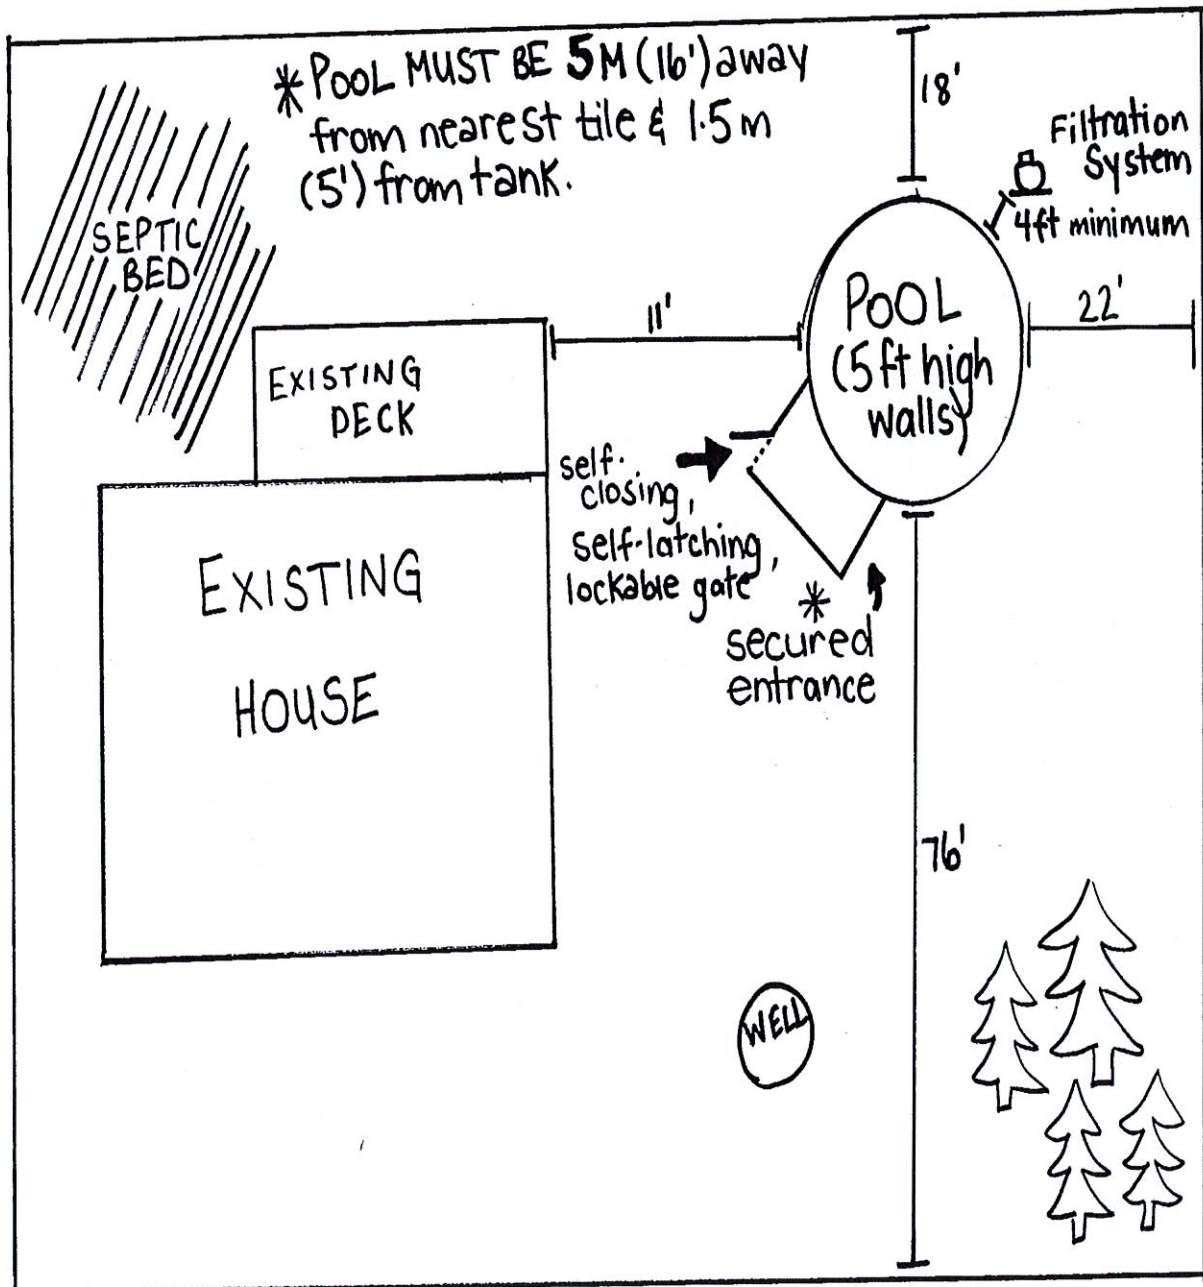 * POOL MUST BE 5M (16') away
from nearest tile & 1.5m
(5') from tank.
18'
Filtration
System
4ft minimum
SEPTIC
BED
POOL
(5ft high
walls)
11'
22'
EXISTING
DECK
self-
closing,
self-latching,
lockable gate
*
secured
entrance
EXISTING
HOUSE
76'
WELL